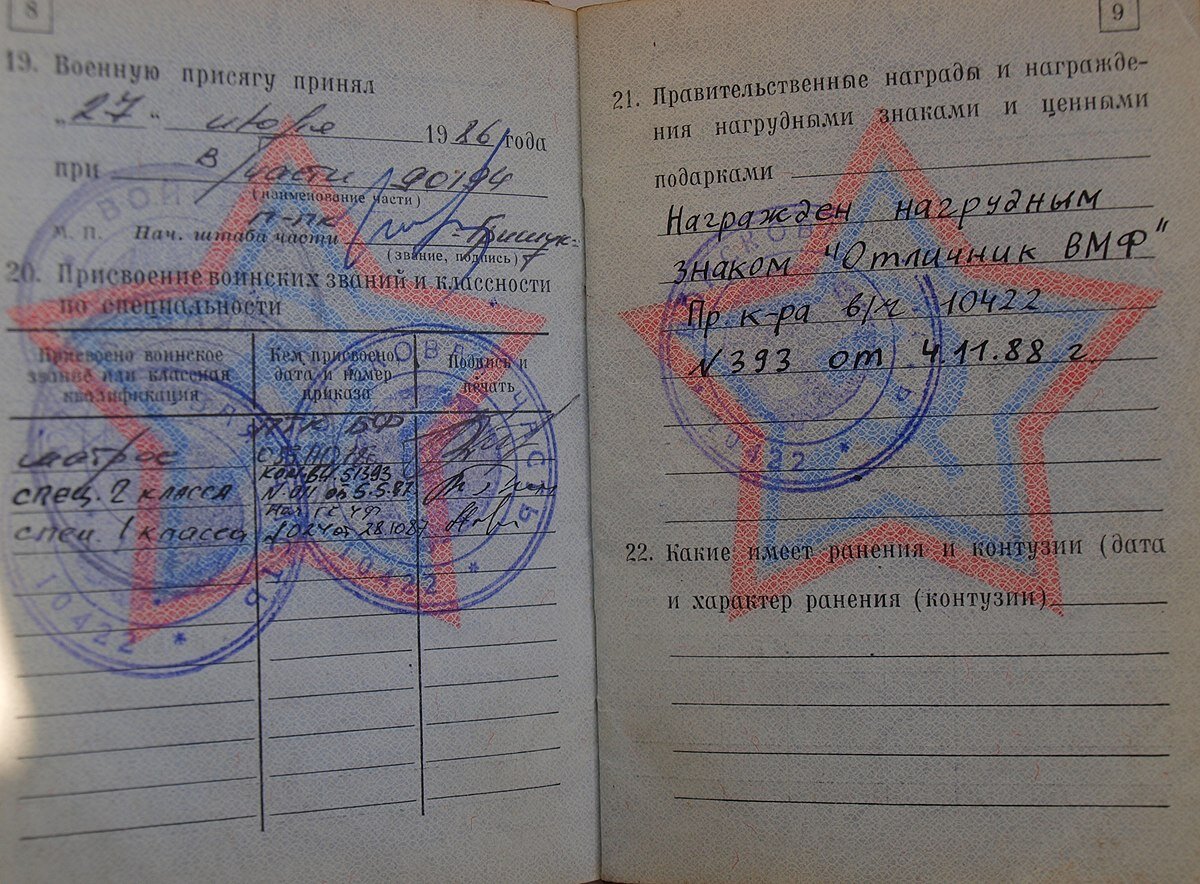 8
19. Военную присягу принял
„27“ 1986 года
при в/части 90194
(наименование части)
п-пк
М. П. Нач. штаба части
(звание, подпись)
20. Присвоение воинских званий и классности
по специальности
Присвоено воинское
звание или классная
квалификация
Кем присвоено,
дата и номер
приказа
Подпись и
печать
матрос
спец. 2 класса
N 011 от 5.5.87
спец. 1 класса
от 28.10.87
ВОЙСКОВАЯ ЧАСТЬ
* 10422 *
9
21. Правительственные награды и награжде-
ния нагрудными знаками и ценными
подарками
Награжден нагрудным
знаком "Отличник ВМФ"
Пр. к-ра в/ч 10422
N 393 от 4.11.88 г
* 10422 *
22. Какие имеет ранения и контузии (дата
и характер ранения (контузии)